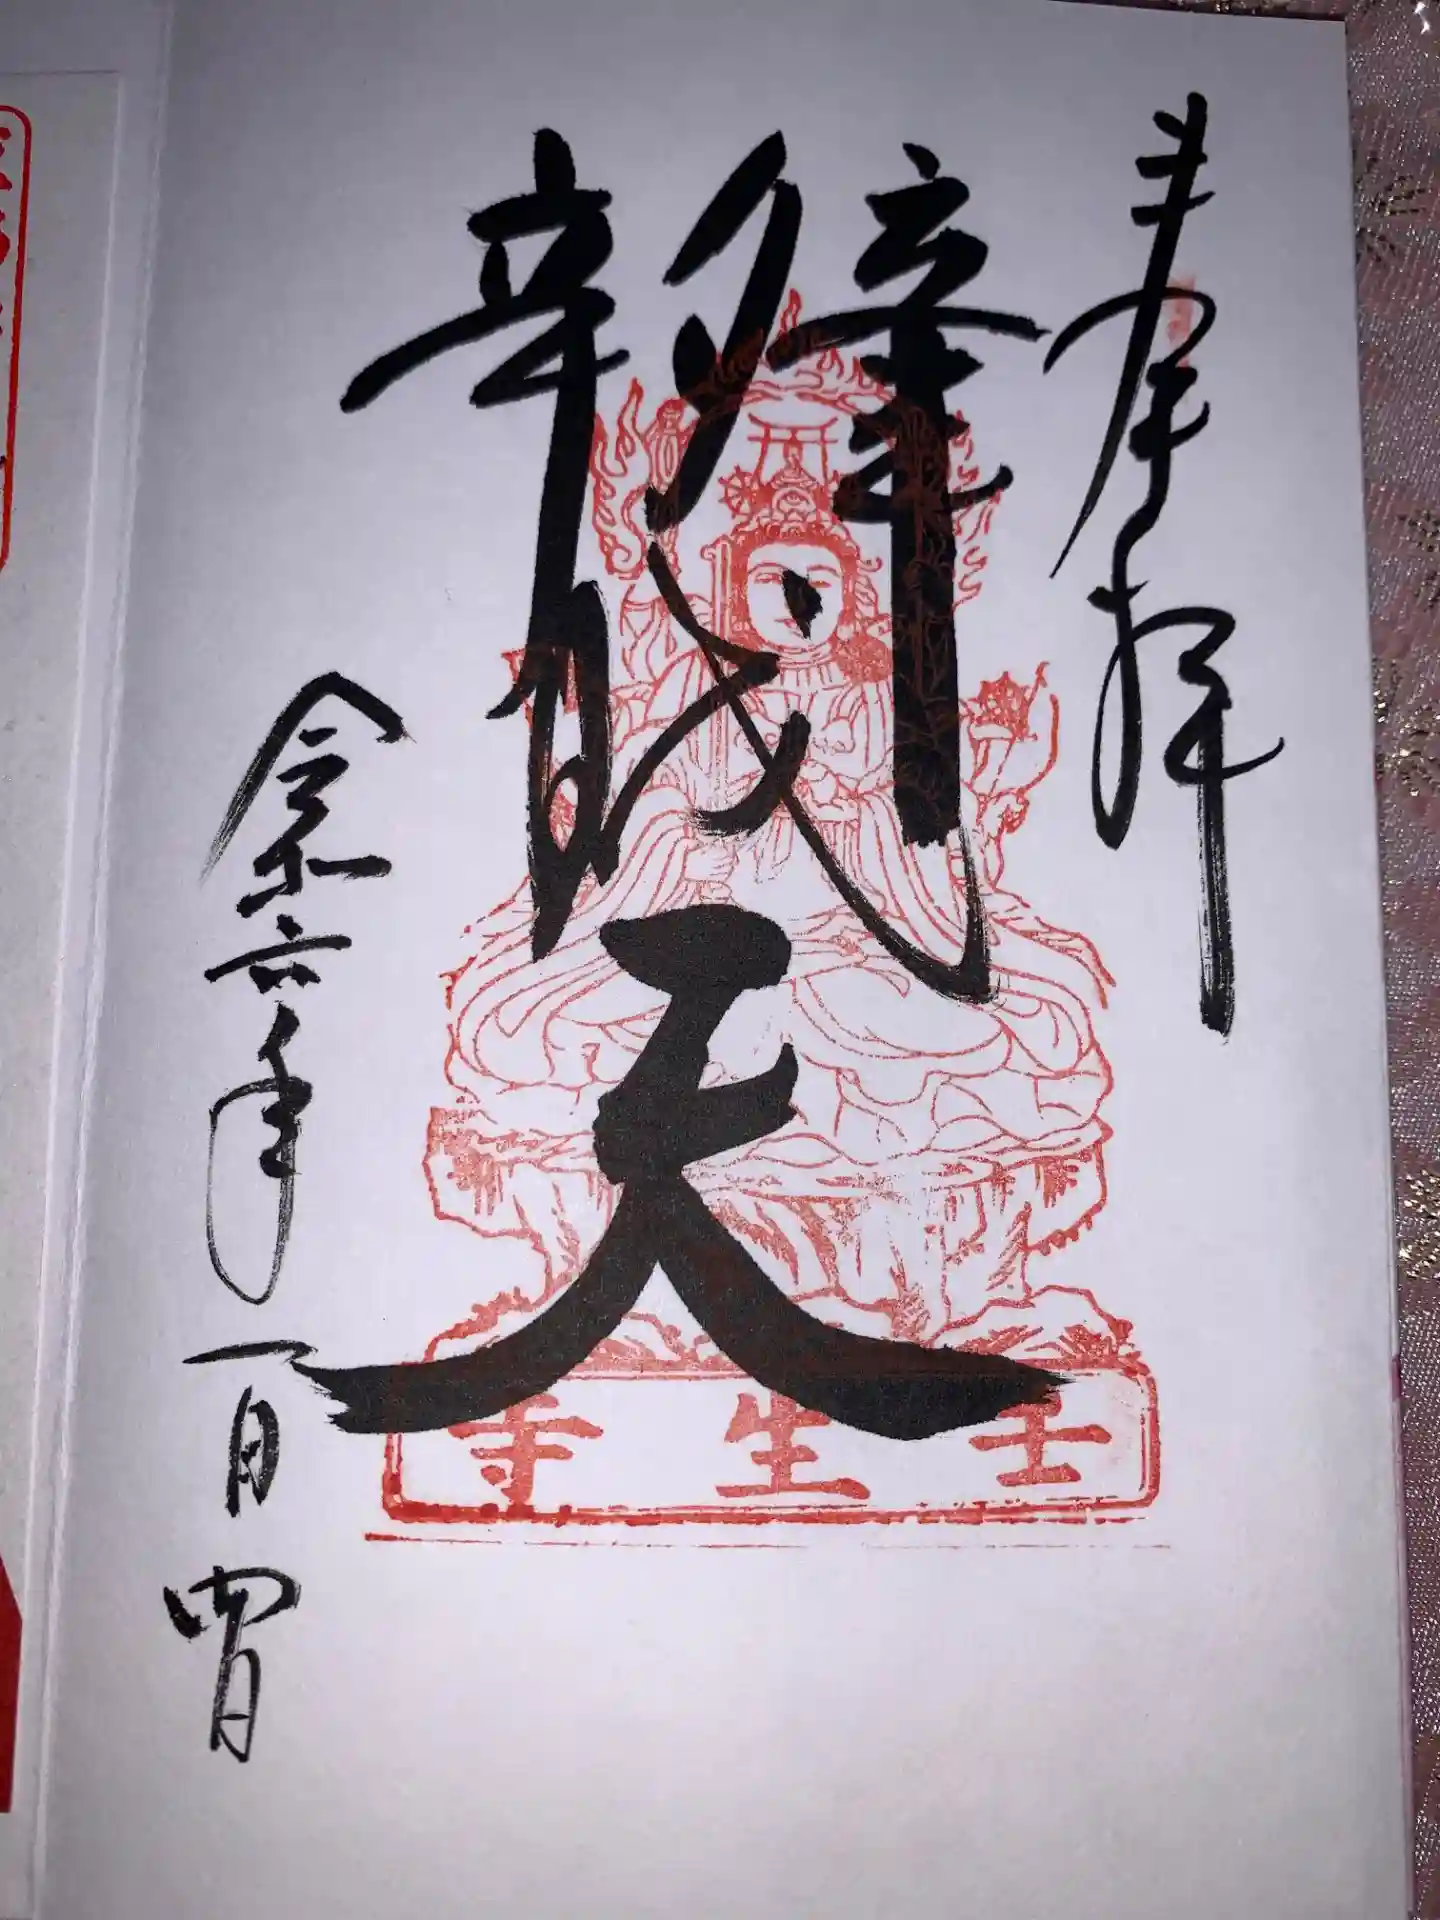 奉拝
辨財天
壬生寺
令和六年一月四日